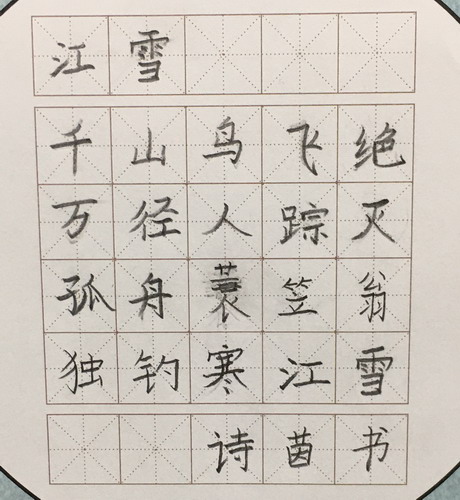 江雪
千山鸟飞绝
万径人踪灭
孤舟蓑笠翁
独钓寒江雪
诗茵书